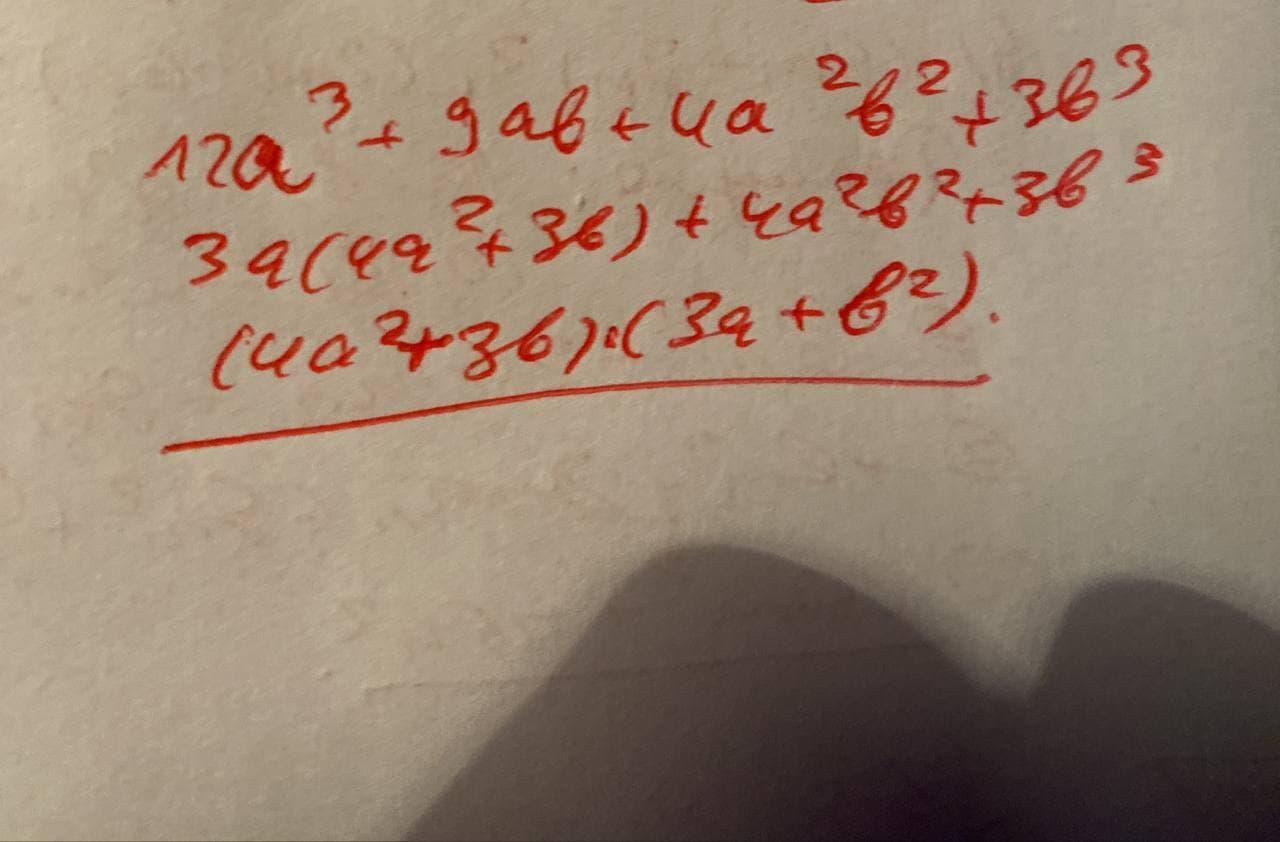 12a³ + 9ab + 4a²b² + 3b³
3a(4a² + 3b) + 4a²b² + 3b³
(4a² + 3b)·(3a + b²).